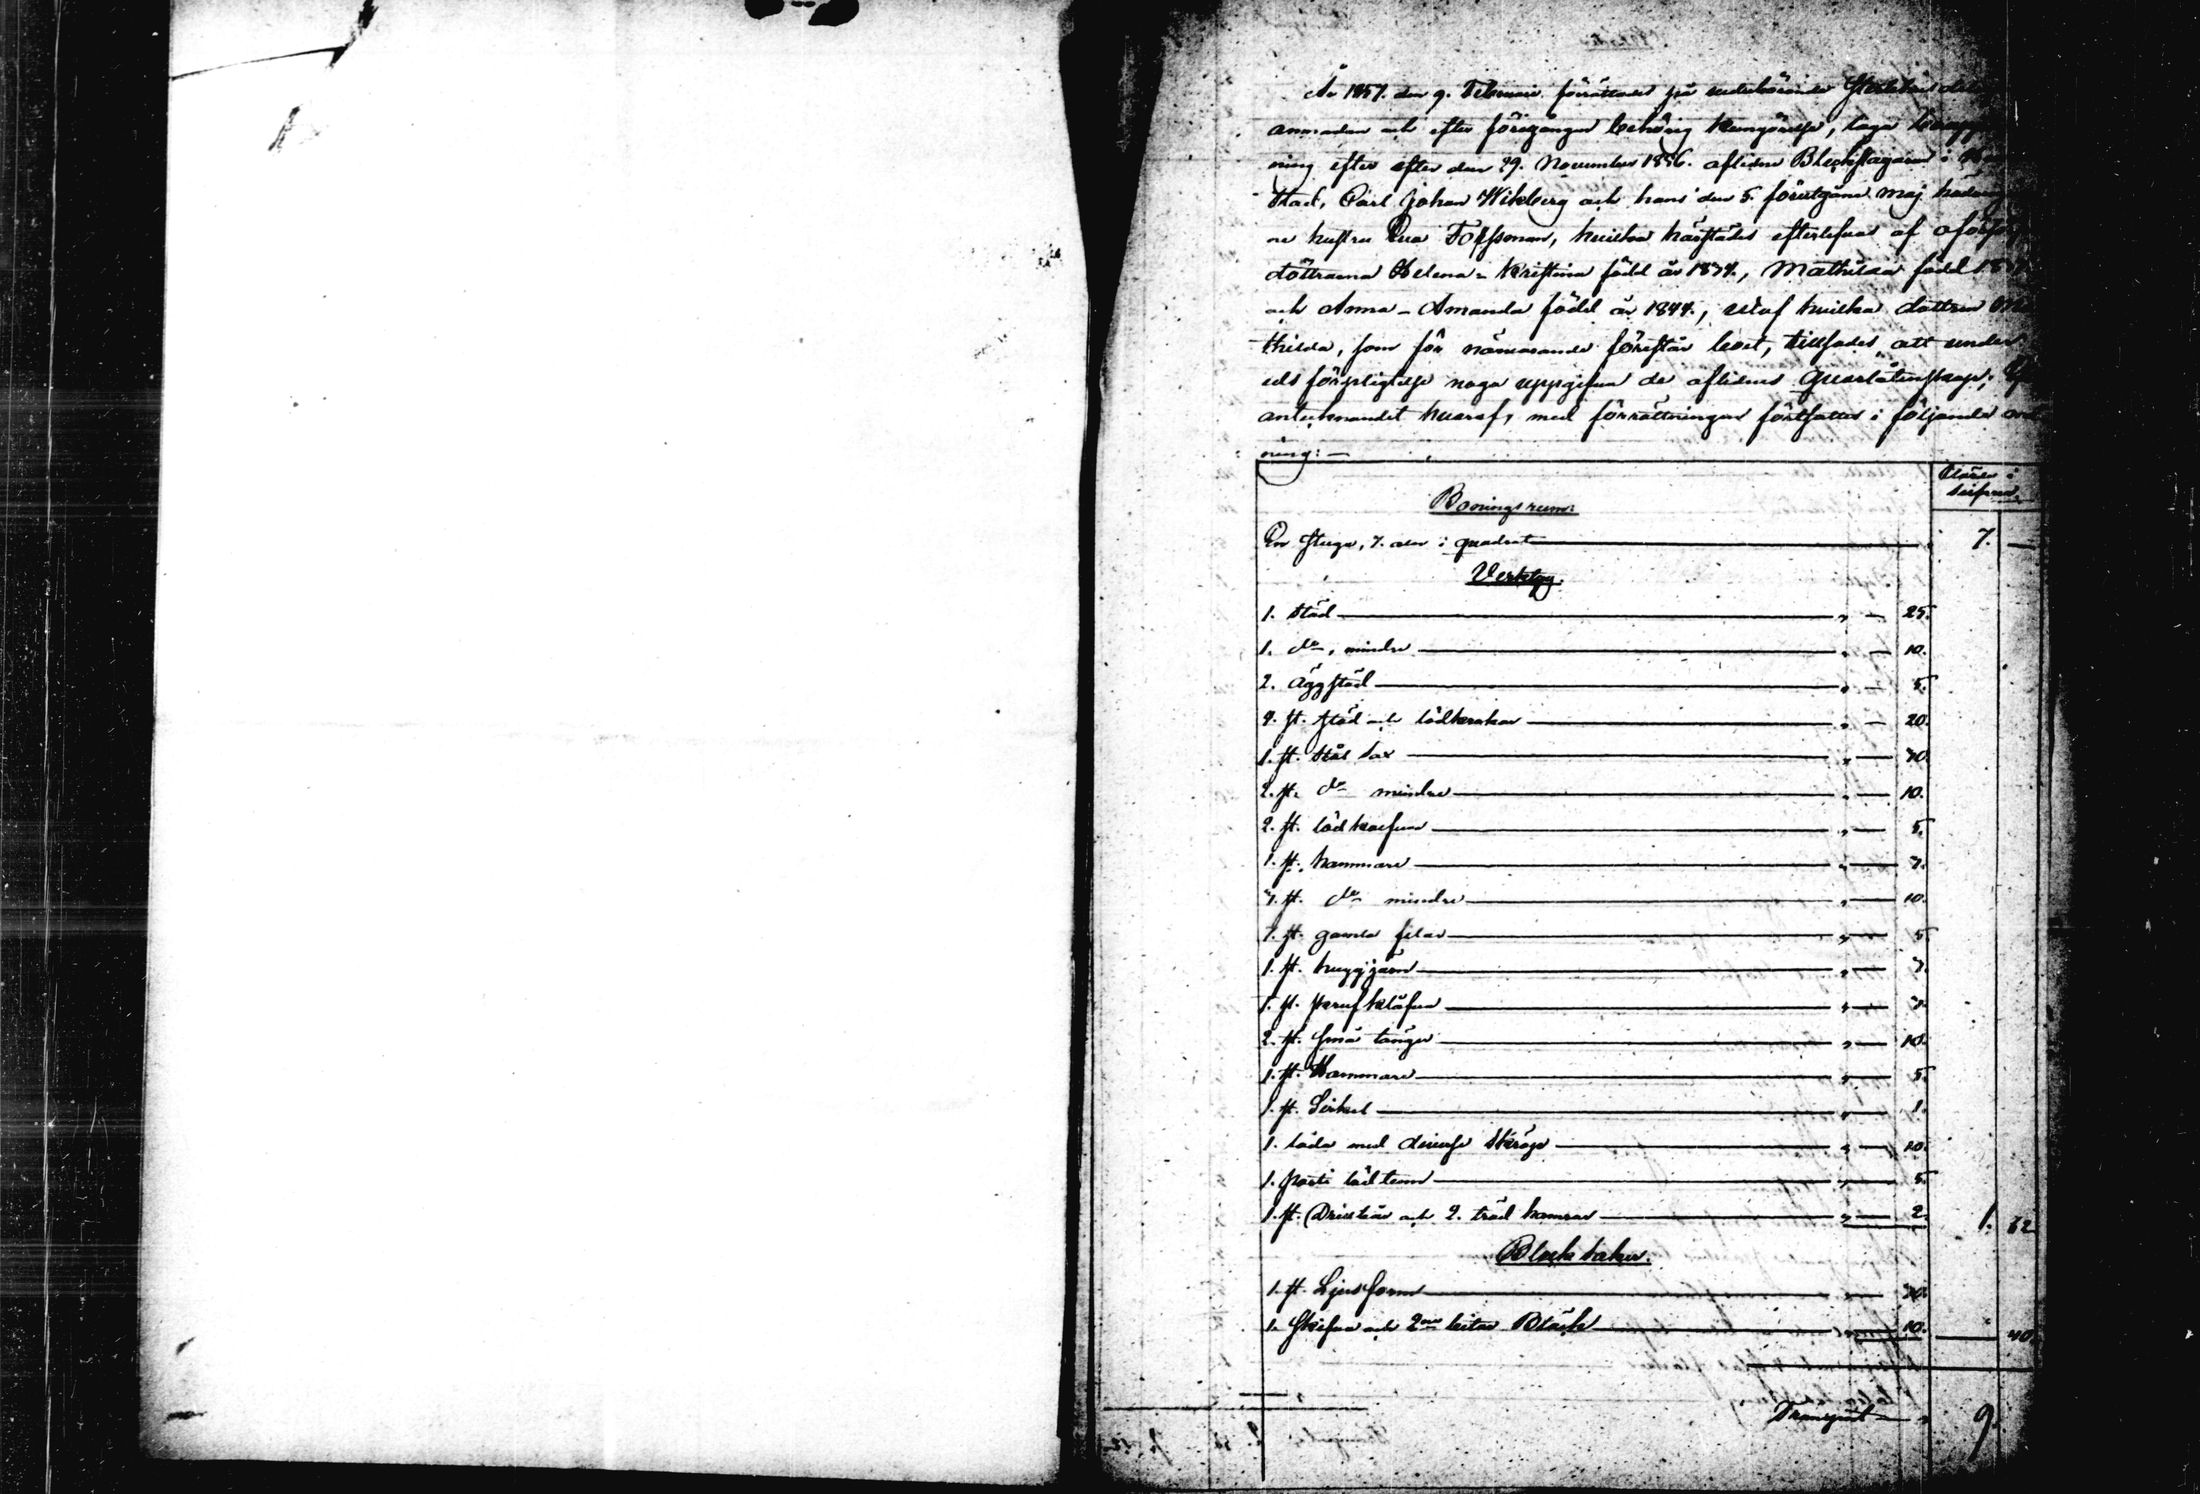 År 1857. den 9. Februari förrättades på vederbörande
anmodan och efter föregången behörig kungörelse, laga
ning efter efter den 29. November 1856. aflidne Bleckslagaren i
stad, Carl Johan Wikberg och hans den 5. förutgångne Maj
ne hustru Eva Forssman, hvilka härstädes efterlefvas af
döttrarna Helena-Kristina född år 1834., Mathilda född
och Anna-Amanda född år 1844., utaf hvilka dottren Ma
thilda, som för närvarande förestår boet, tillsades att under
eds förpligtelse noga uppgifva de aflidnes qvarlåtenskap;
antecknandet hvaraf, med förrättningen fortsattes i följande ord
ning: —
Silfver.
Boningsrum.
En stuga, 7. aln i quadrat 7. —
Verktyg.
1. städ " — 25.
1. do, mindre " — 10.
2. äggstäd " — 5.
4. st. städ och lödkrokar " — 20.
1. st. stål sax " — 10.
2. st. do mindre " — 10.
2. st. lödkolfvar " — 5.
1. st. hammare " — 3.
3. st. do mindre " — 10.
st. gamla filar " — 5.
1. st. huggjärn " — 3.
1. st. skrufklåfva " — 3.
2. st. små tänger " — 10.
1. st. Hammare " — 5.
1. st. Sirkel " — 1.
1. låda med diverse skräp " — 10.
1. parti löd tenn " — 5.
1. st. och 2. träd hamrar " — 2. 1. 42
Bleck saker.
1. st. Ljusform " — 30.
1. Skifva och 2ne bitar Bläck " — 10. 40
Transport — " 9.